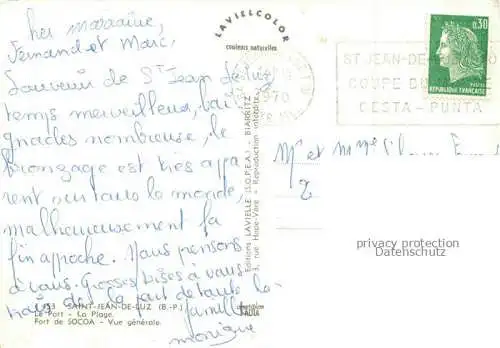 her marraine,
Fernand et Marc,
Souvenir de St Jean de Luz
temps merveilleux, bai
gnades nombreuse, le
bronzage est très appa
rent sur tous le monde,
malheureusement la
fin approche. Nous pensons
à vous. Grosses bises à vous
trois de la part de toute la
famille
monique
LAVIELCOLOR
couleurs naturelles
Editions LAVIELLE (S.O.P.E.A.) - BIARRITZ
3, rue Hope-Vère - Reproduction interdite
1970
ST JEAN-DE
COUPE DU
CESTA - PUNTA
0,30
POSTES
REPUBLIQUE FRANÇAISE
Mr et Mme
privacy protection
Datenschutz
153 SAINT-JEAN-DE-LUZ (B.-P.)
Le Port - La Plage.
Fort de SOCOA - Vue générale.